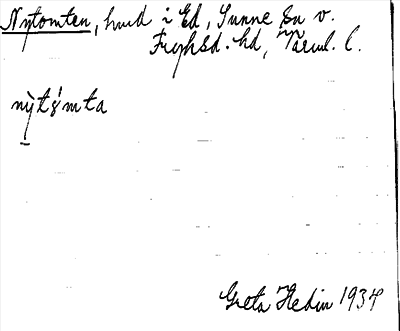 Nytomten, hmd i Ed, Sunne sn v.
Fryksd. hd, Värml. l.
nỳtǫ́mta
Greta Hedin 1934